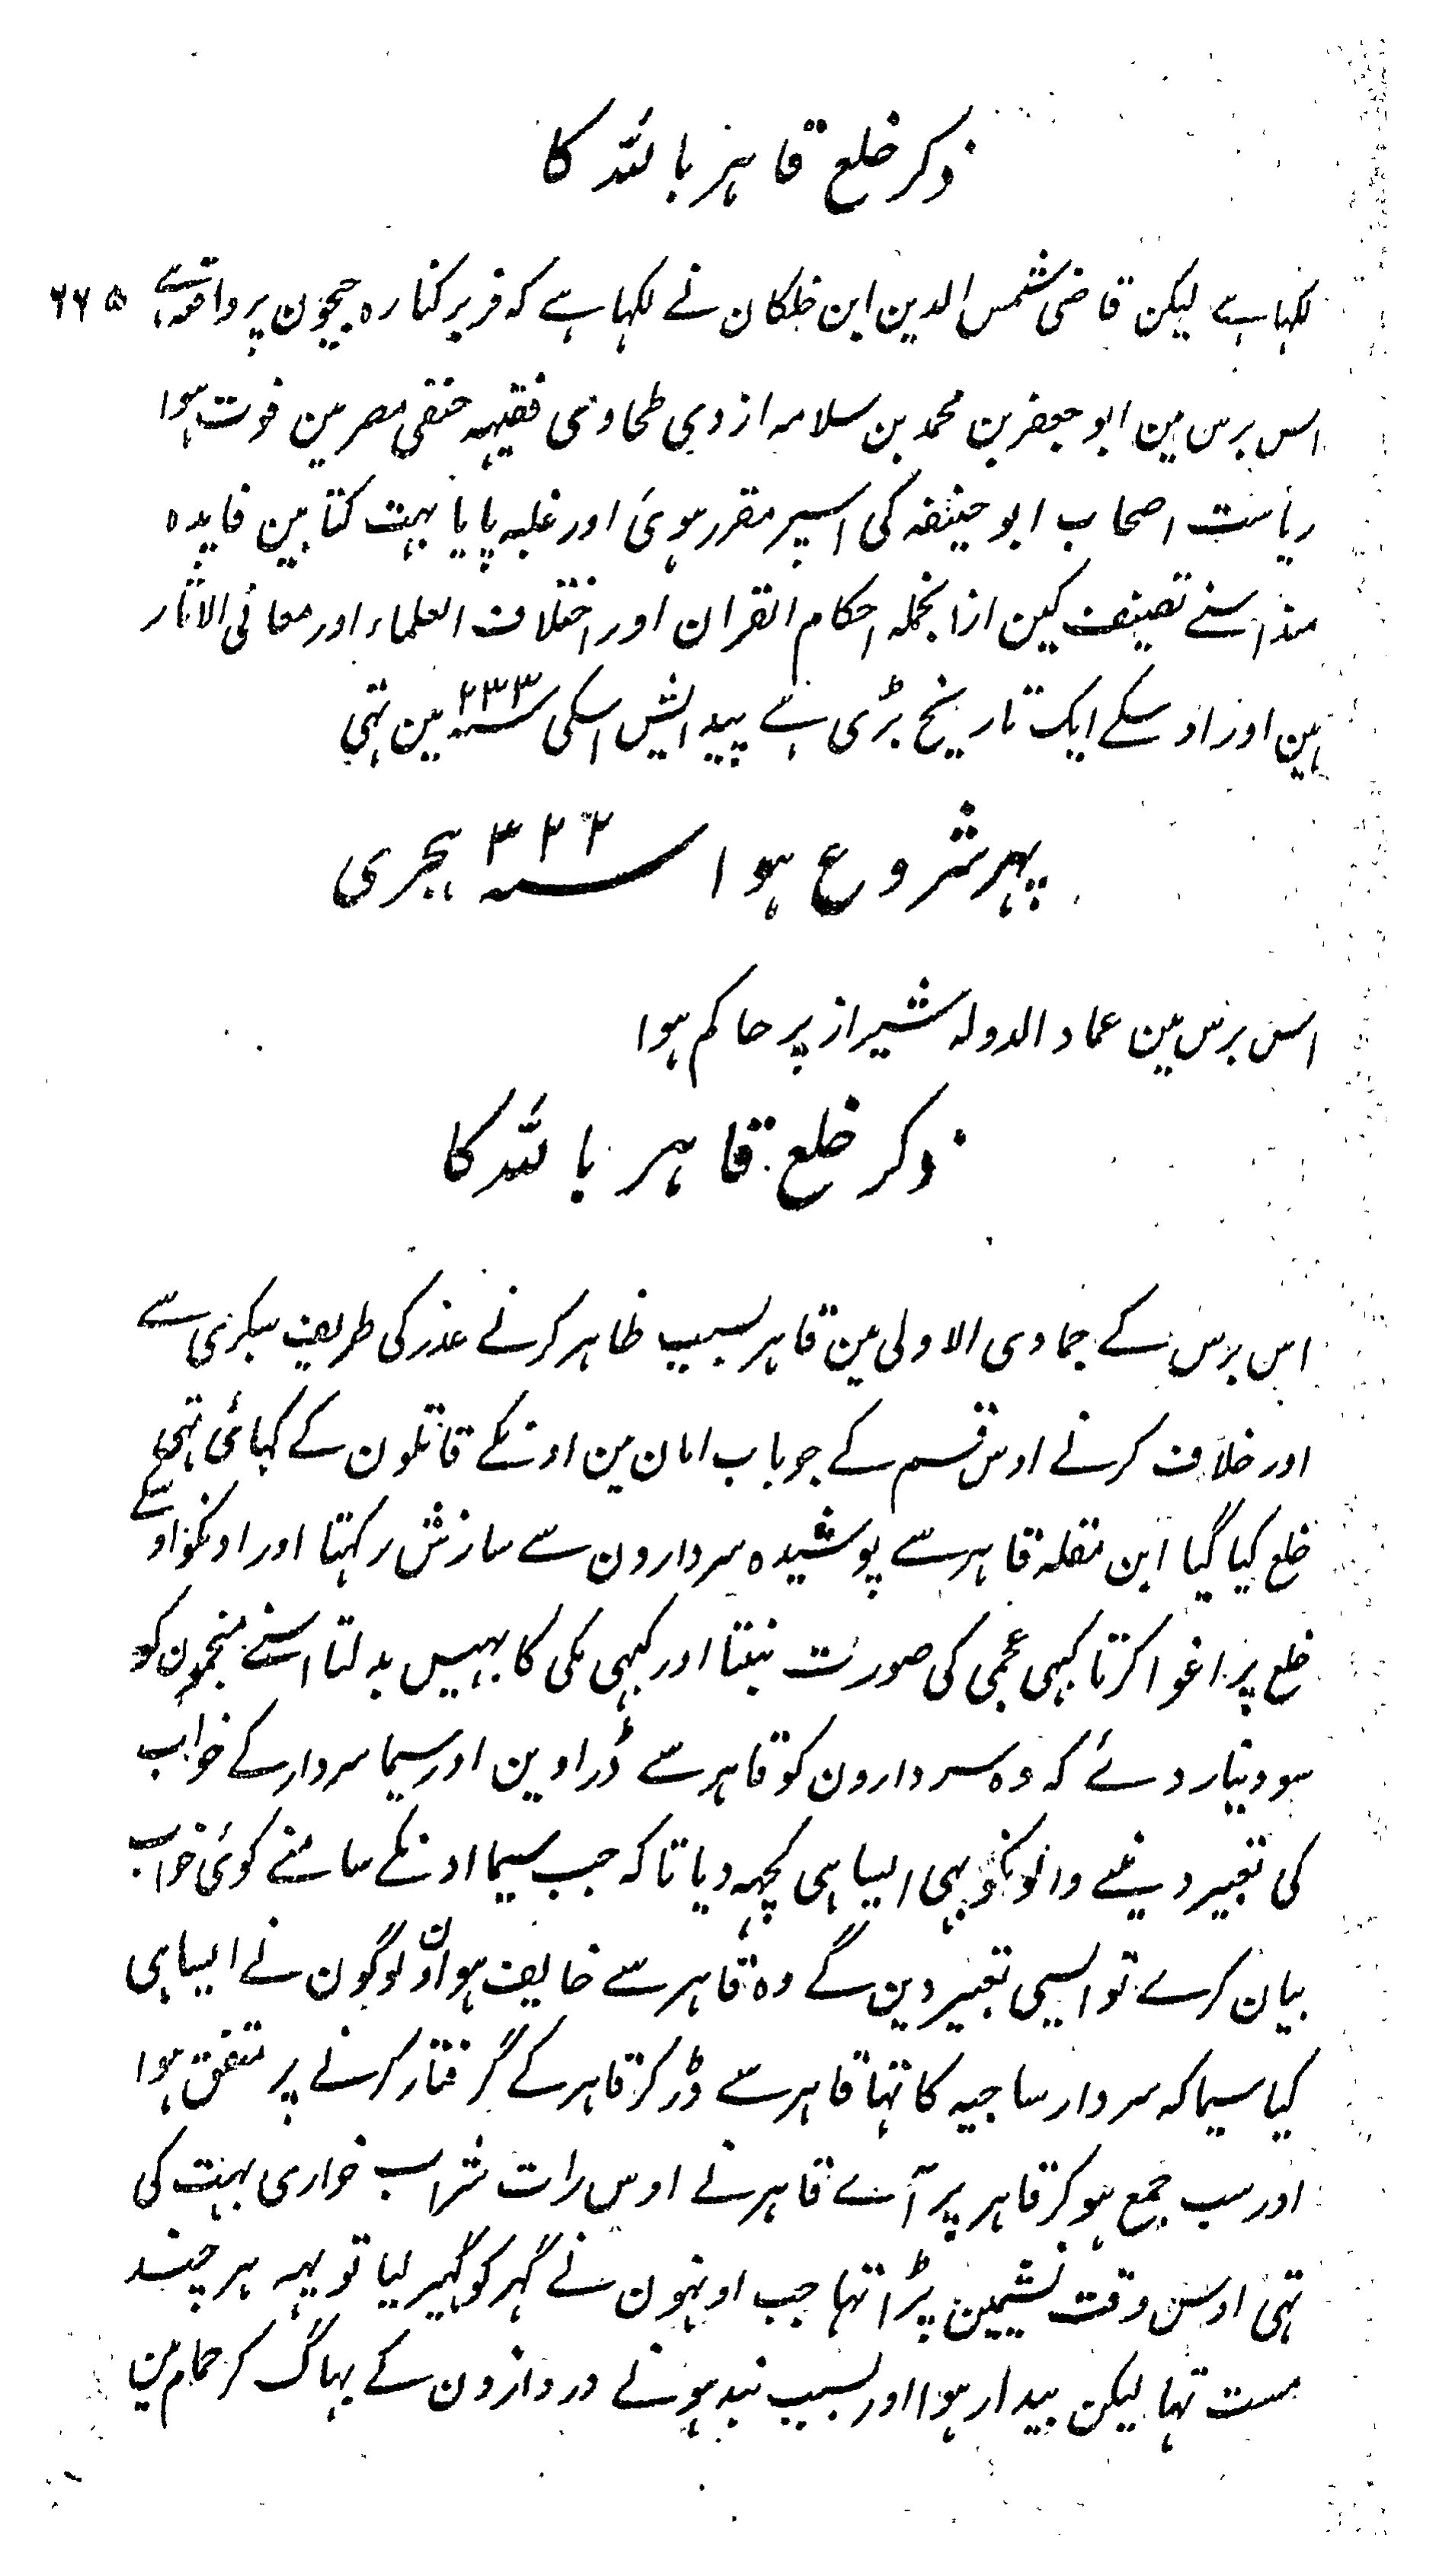 ذکر خلع قاہر باللہ کا
لکہا ہے لیکن قاضی شمس الدین ابن خلکان نے لکہا ہے کہ فربر کنارہ جیحون پر واقع ہے ۶۶۵
اس برس مین ابو جعفر بن محمد بن سلامہ ازدی طحاوی فقیہہ حنفی مصر مین فوت ہوا
ریاست اصحاب ابو حنیفہ کی اسپر مقرر ہوئی اور غلبہ پایا بہت کتابین فایدہ
مند اسنے تصنیف کین ازانجملہ احکام القران اور اختلاف العلماء اور معانی الاثار
ہین اور اوسکے ایک تاریخ بڑی ہے پیدایش اسکی سنہ ۲۳۳ مین تہی
پہر شروع ہوا سنہ ۳۲۲ ہجری
اس برس مین عماد الدولہ شیراز پر حاکم ہوا
ذکر خلع قاہر باللہ کا
اس برس کے جمادی الاولی مین قاہر بسبب ظاہر کرنے عذر کی طریف سبکری سے
اور خلاف کرنے اوس قسم کے جو باب امان مین اونکے قاتلون کے کہائی تہی
خلع کیا گیا ابن مقلہ قاہر سے پوشیدہ سردارون سے سازش رکہتا اور اونکو اوسکے
خلع پر اغوا کرتا کبہی عجمی کی صورت بنتا اور کبہی مکی کا بہیس بدلتا اسنے منجمون کو
سو دینار دئے کہ وہ سردارون کو قاہر سے ڈراوین اور سیما سردار کے خواب
کی تعبیر دینے والونکو بہی ایسا ہی کچہہ دیا تاکہ جب سیما اونکے سامنے کوئی خواب
بیان کرے تو ایسی تعبیر دین گے وہ قاہر سے خایف ہو اون لوگون نے ایسا ہی
کیا سیما کہ سردار ساجیہ کا تہا قاہر سے ڈر کر قاہر کے گرفتار کرنے پر متفق ہوا
اور سب جمع ہو کر قاہر پر آے قاہر نے اوس رات شراب خواری بہت کی
تہی اوس وقت نشیمین پڑا تہا جب اونہون نے گہر کو گہیر لیا تو یہہ ہر چند
مست تہا لیکن بیدار ہوا اور بسبب بند ہونے دروازون کے بہاگ کر حمام مین